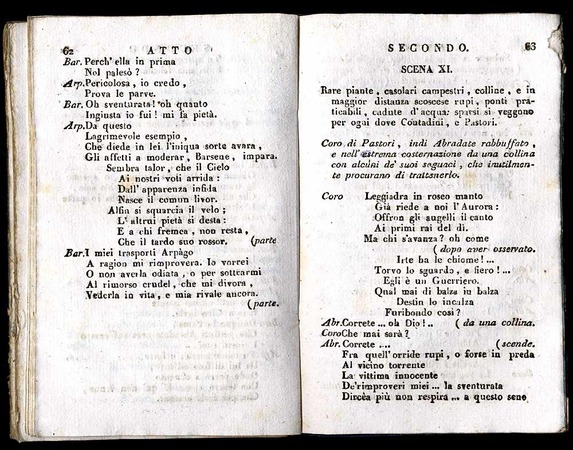 62 ATTO
Bar. Perch' ella in prima
Nol palesò ?
Arp. Pericolosa , io credo ,
Prova le parve.
Bar. Oh sventurata ! oh quanto
Ingiusta io fui ! mi fa pietà.
Arp. Da questo
Lagrimevole esempio ,
Che diede in lei l'iniqua sorte avara ,
Gli affetti a moderar , Barsene , impara.
Sembra talor , che il Cielo
Ai nostri voti arrida :
Dall' apparenza infida
Nasce il comun livor.
Alfin si squarcia il velo ;
L' altrui pietà si desta :
E a chi fremea , non resta ,
Che il tardo suo rossor. (parte
Bar. I miei trasporti Arpàgo
A ragion mi rimprovera. Io vorrei
O non averla odiata , o per sottrarmi
Al rimorso crudel , che mi divora ,
Vederla in vita , e mia rivale ancora.
(parte.
SECONDO. 63
SCENA XI.
Rare piante , casolari campestri , colline , e in
maggior distanza scoscese rupi , ponti pra-
ticabili , cadute d'acqua: sparsi si veggono
per ogni dove Contadini , e Pastori.
Coro di Pastori , indi Abradate rabbuffato ,
e nell'estrema costernazione da una collina
con alcuni de' suoi seguaci , che inutilmen-
te procurano di trattenerlo.
Coro Leggiadra in roseo manto
Già riede a noi l'Aurora :
Offron gli augelli il canto
Ai primi rai del dì.
Ma chi s'avanza ? oh come
( dopo aver osservato.
Irte ha le chiome ! ...
Torvo lo sguardo , e fiero ! ...
Egli è un Guerriero.
Qual mai di balza in balza
Destin lo incalza
Furibondo così ?
Abr. Correte ... oh Dio ! .. ( da una collina.
Coro Che mai sarà ?
Abr. Correte .... (scende.
Fra quell' orride rupi , o forse in preda
Al vicino torrente
La vittima innocente
De'rimproveri miei ... la sventurata
Dircèa più non respira ... a questo seno